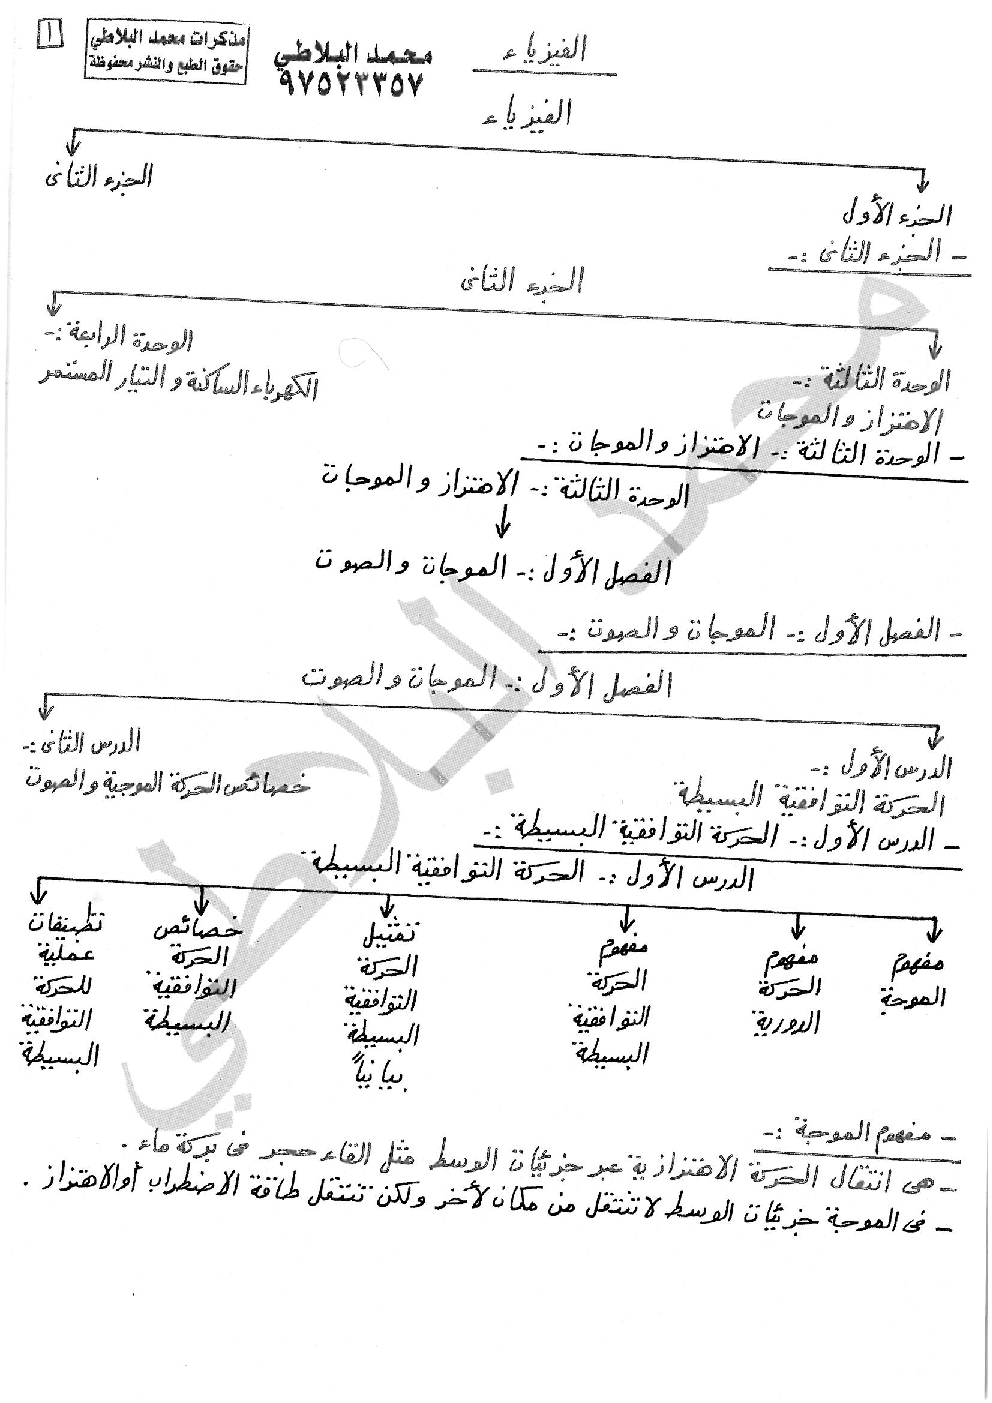 ١
مذكرات محمد البلاطي
حقوق الطبع والنشر محفوظة
محمد البلاطي
٩٧٥٢٣٣٥٧
الفيزياء
الفيزياء
الجزء الأول
الجزء الثانى
- الجزء الثانى :-
الجزء الثانى
الوحدة الثالثة :-
الاهتزاز والموجات
الوحدة الرابعة :-
الكهرباء الساكنة والتيار المستمر
- الوحدة الثالثة :- الاهتزاز والموجات :-
الوحدة الثالثة :- الاهتزاز والموجات
الفصل الأول :- الموجات والصوت
- الفصل الأول :- الموجات والصوت :-
الفصل الأول :- الموجات والصوت
الدرس الأول :-
الحركة التوافقية البسيطة
الدرس الثانى :-
خصائص الحركة الموجية والصوت
- الدرس الأول :- الحركة التوافقية البسيطة :-
الدرس الأول :- الحركة التوافقية البسيطة
مفهوم
الموجة
مفهوم
الحركة
الدورية
مفهوم
الحركة
التوافقية
البسيطة
تمثيل
الحركة
التوافقية
البسيطة
بيانياً
خصائص
الحركة
التوافقية
البسيطة
تطبيقات
عملية
للحركة
التوافقية
البسيطة
- مفهوم الموجة :-
- هى انتقال الحركة الاهتزازية عبر جزيئات الوسط مثل القاء حجر فى بركة ماء .
- فى الموجة جزيئات الوسط لا تنتقل من مكان لأخر ولكن تنتقل طاقة الاضطراب أو الاهتزاز .
محمد البلاطي